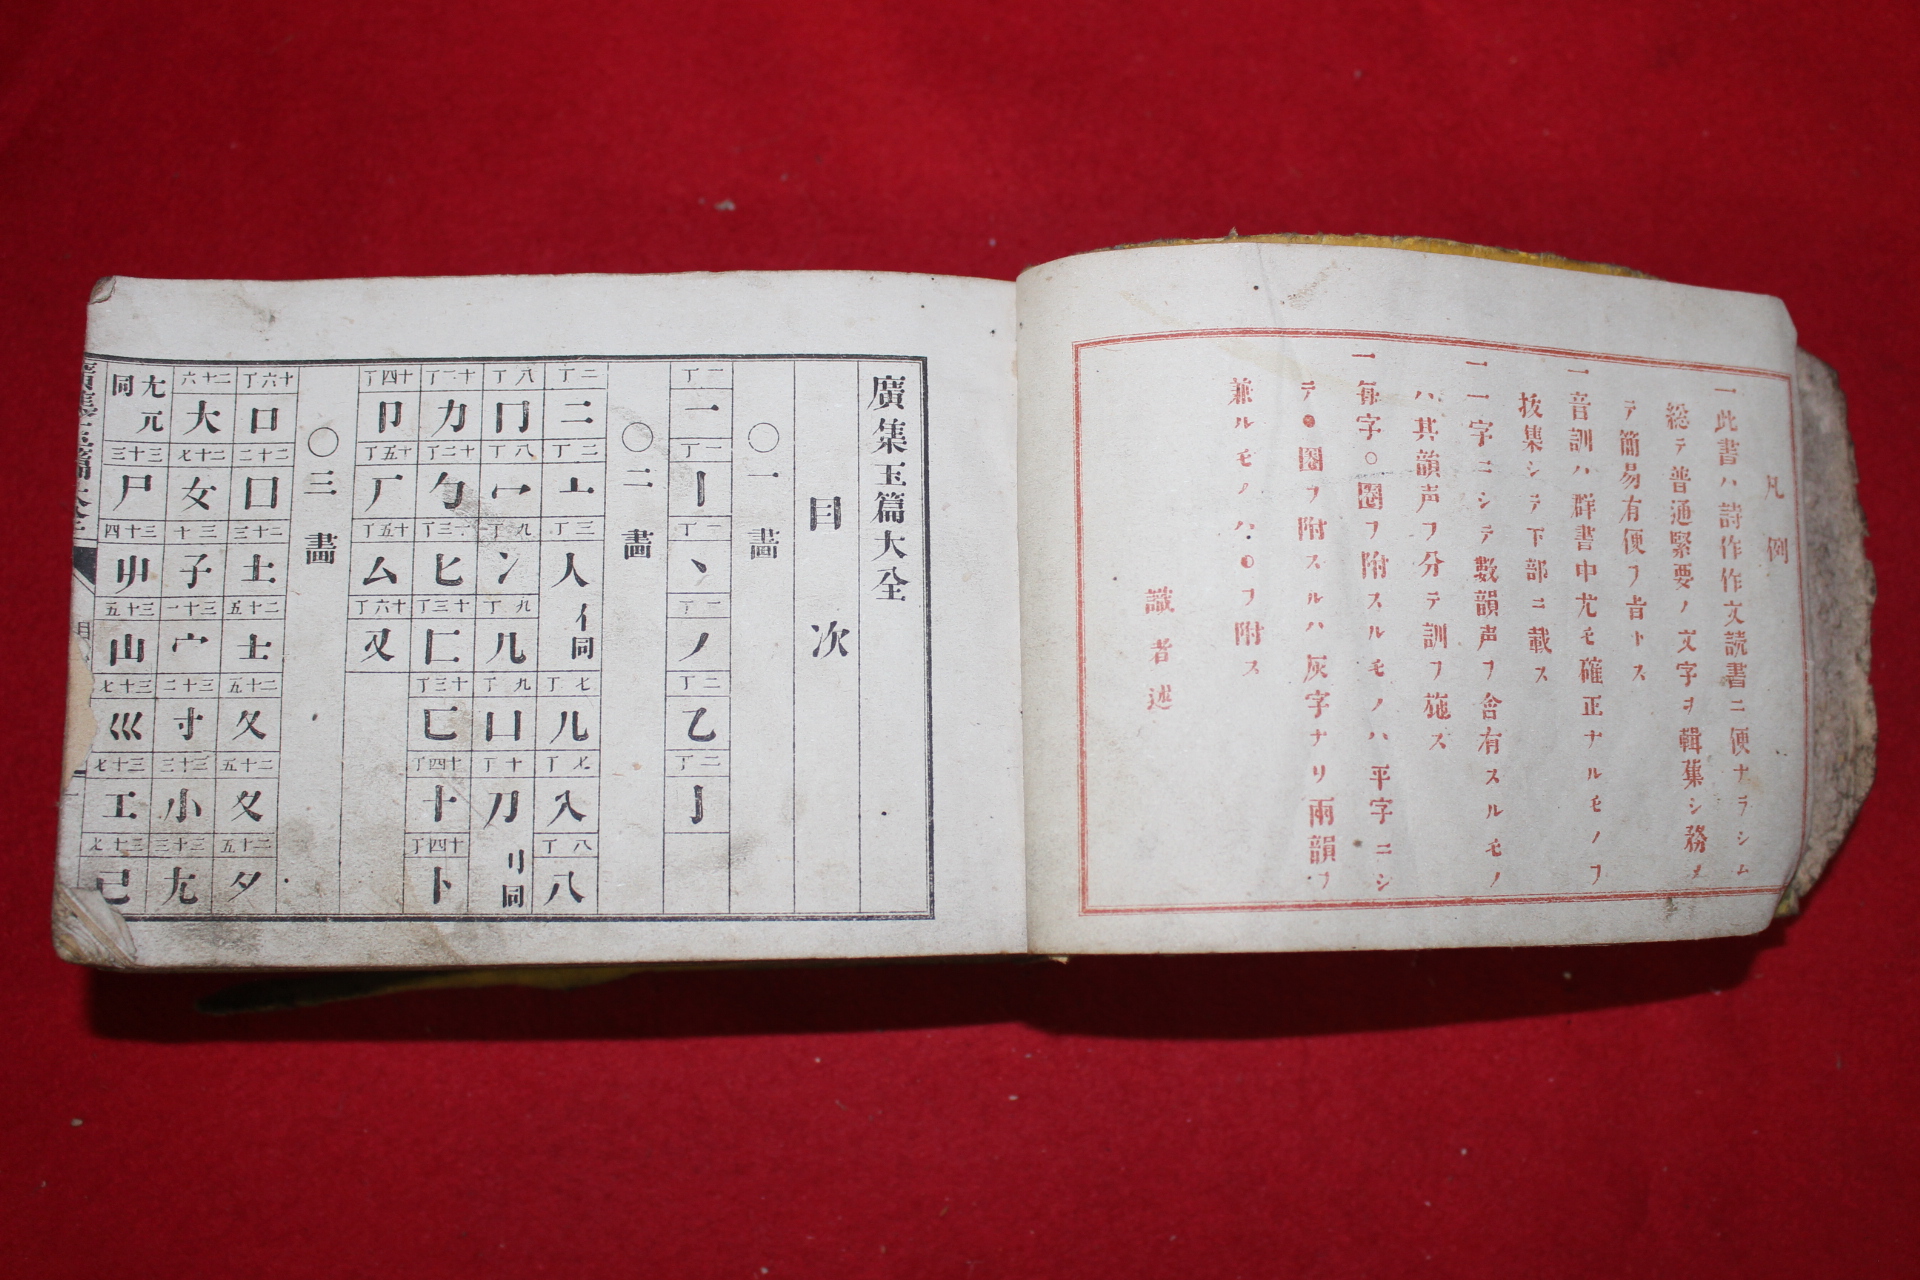 凡例
一此書ハ詩作作文読書ニ便ナラシム
総テ普通緊要ノ文字ヲ輯集シ務メ
テ簡易有便ヲ旨トス
一音訓ハ群書中尤モ確正ナルモノヲ
抜集シテ下部ニ載ス
一一字ニシテ数韻声ヲ含有スルモノ
ハ其韻声ヲ分テ訓ヲ施ス
一每字○圏ヲ附スルモノハ平字ニシ
テ●圏ヲ附スルハ灰字ナリ両韻ヲ
兼ルモノハ
ヲ附ス
識者述
廣集玉篇大全
目次
○一畫
一丁 一 一丁 丨 一丁 丶 二丁 丿 二丁 乙 二丁 亅
○二畫
二丁 二 二丁 亠 三丁 人 亻同 七丁 儿 七丁 入 八丁 八
八丁 冂 八丁 冖 九丁 冫 九丁 几 九丁 凵 十丁 刀 刂同
十二丁 力 十二丁 勹 十三丁 匕 十三丁 匚 十三丁 匸 十四丁 十 十四丁 卜
十四丁 卩 十五丁 厂 十五丁 厶 十六丁 又
○三畫
十六丁 口 二十二 囗 二十三 土 二十五 士 二十五 夂 二十五 夊 二十五 夕
二十六 大 二十七 女 三十 子 三十一 宀 三十二 寸 三十三 小 三十三 尢
尢兀同 三十三 尸 三十四 屮 三十五 山 三十七 巛 三十七 工 三十七 己
廣集玉篇大全